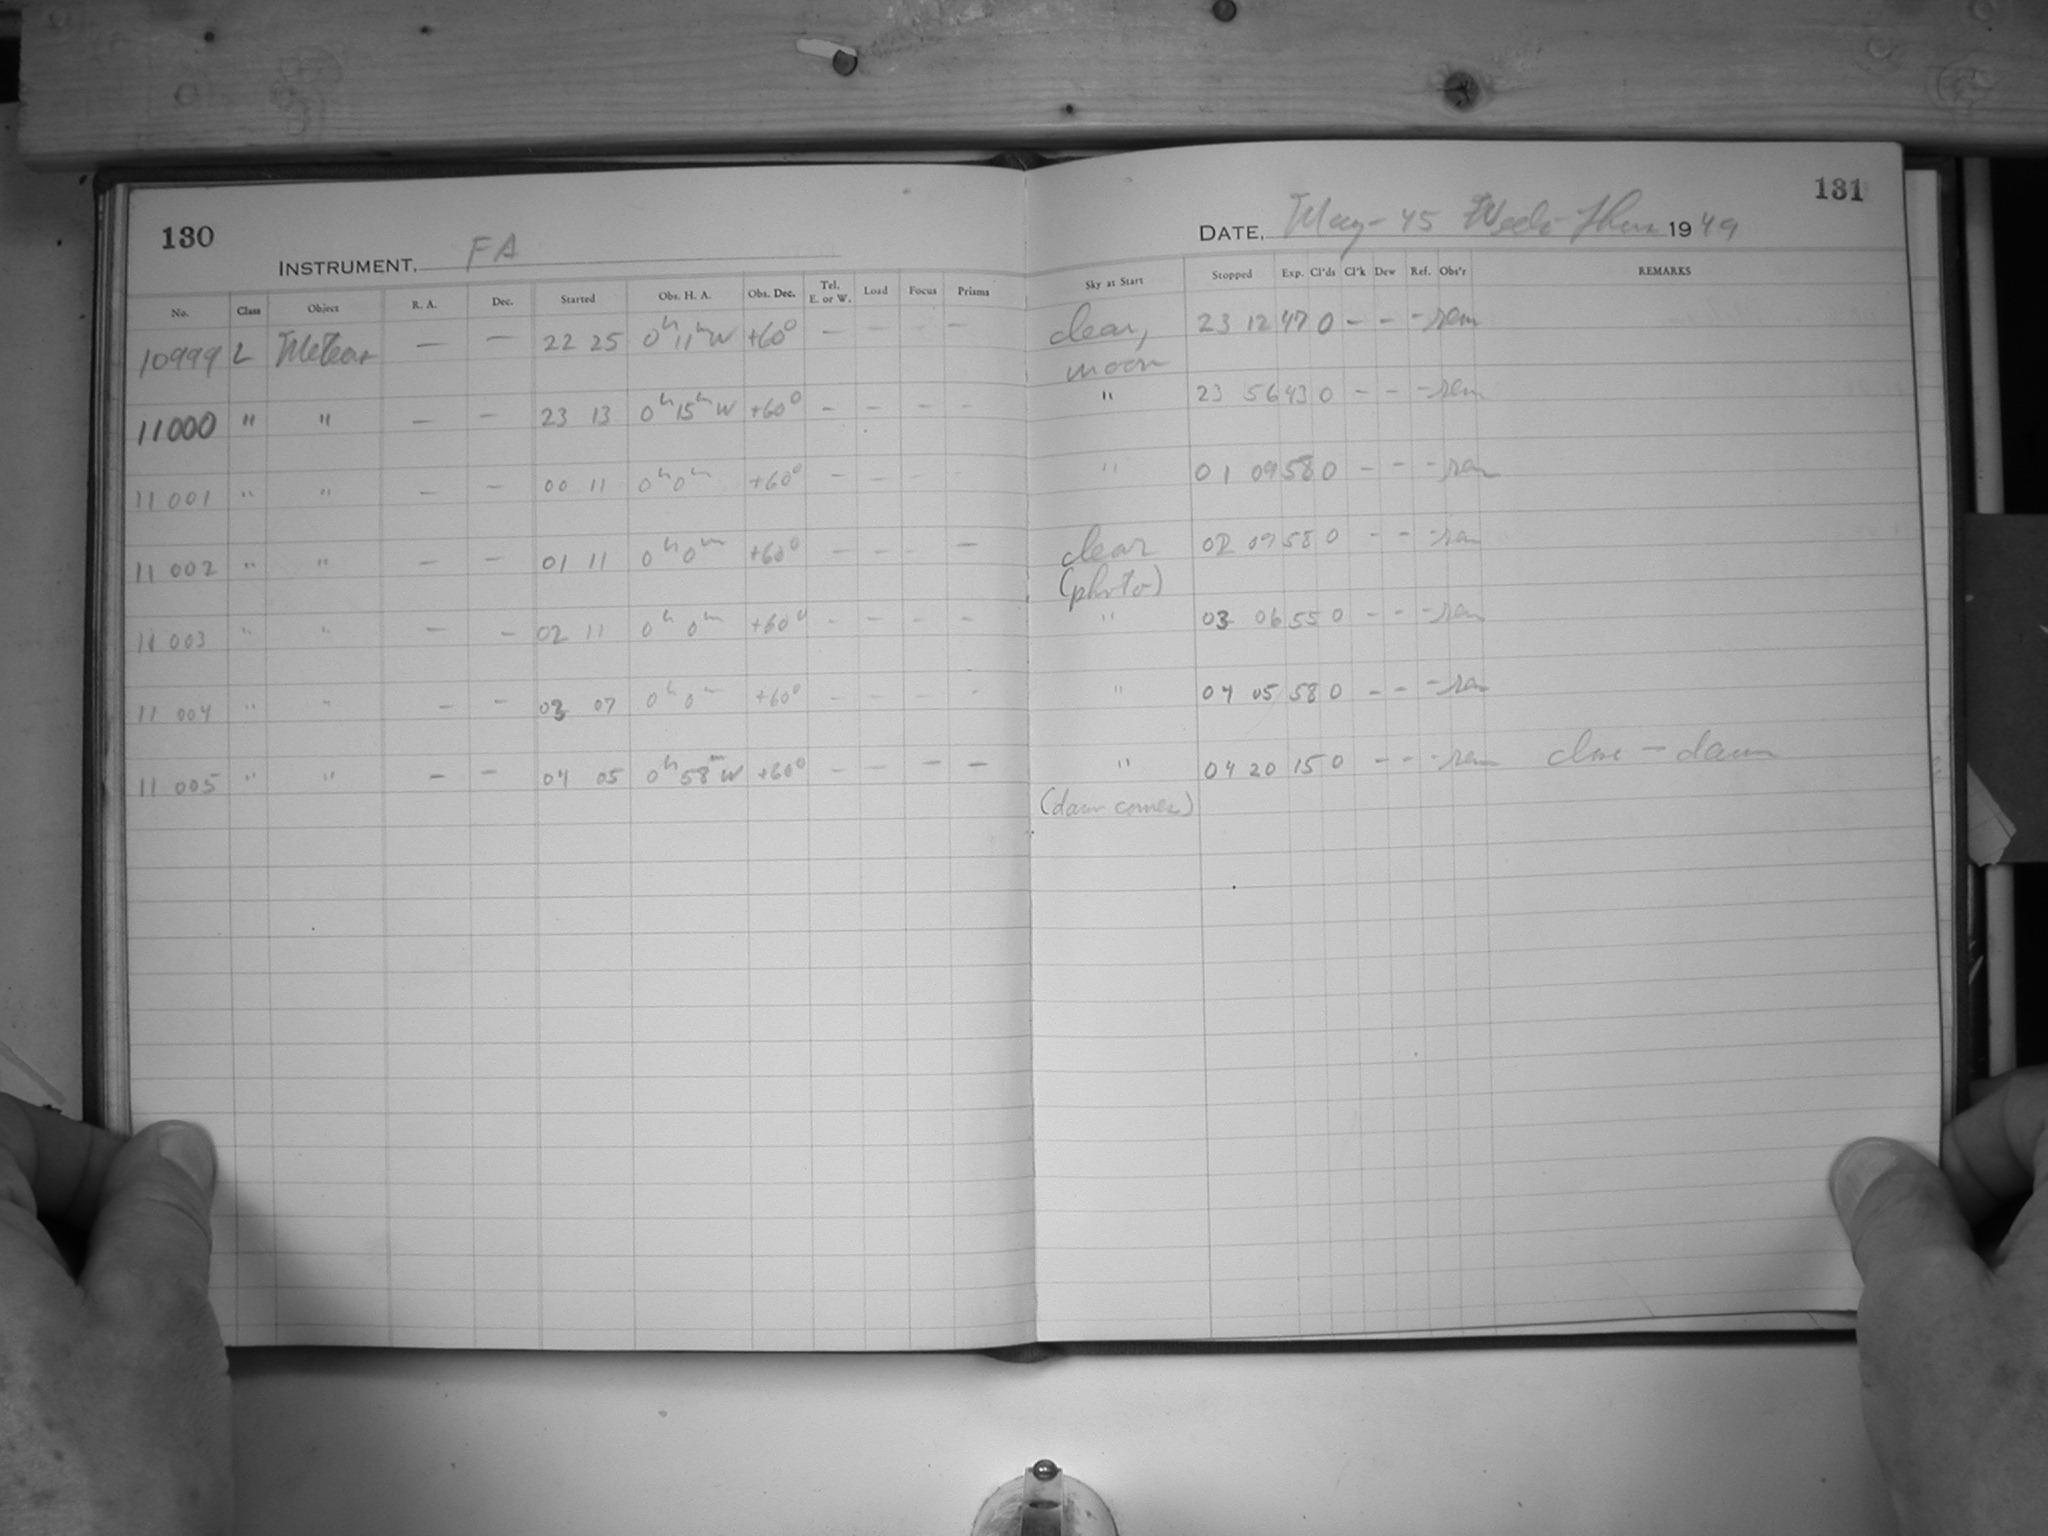 130
INSTRUMENT. FA
No. Class Object R. A. Dec. Started Obs. H. A. Obs. Dec. Tel. E. or W. Load Focus Prisms
10999 L Meteor — — 22 25 0h 11m W +60° — — — —
11000 " " — — 23 13 0h 15m W +60° — — — —
11 001 " " — — 00 11 0h 0m +60° — — — —
11 002 " " — — 01 11 0h 0m +60° — — — —
11 003 " " — — 02 11 0h 0m +60° — — — —
11 004 " " — — 03 07 0h 0m +60° — — — —
11 005 " " — — 04 05 0h 58m W +60° — — — —
131
DATE, May- 45 Weds- Thurs 1949
Sky at Start Stopped Exp. Cl'ds Cl'k Dew Ref. Obs'r REMARKS
clear, 23 12 47 0 - - -
moon
" 23 56 43 0 - - -
" 01 09 58 0 - - -
clear 02 09 58 0 - - -
(photo)
" 03 06 55 0 - - -
" 04 05 58 0 - - -
" 04 20 15 0 - - - close - dawn
(dawn comes)